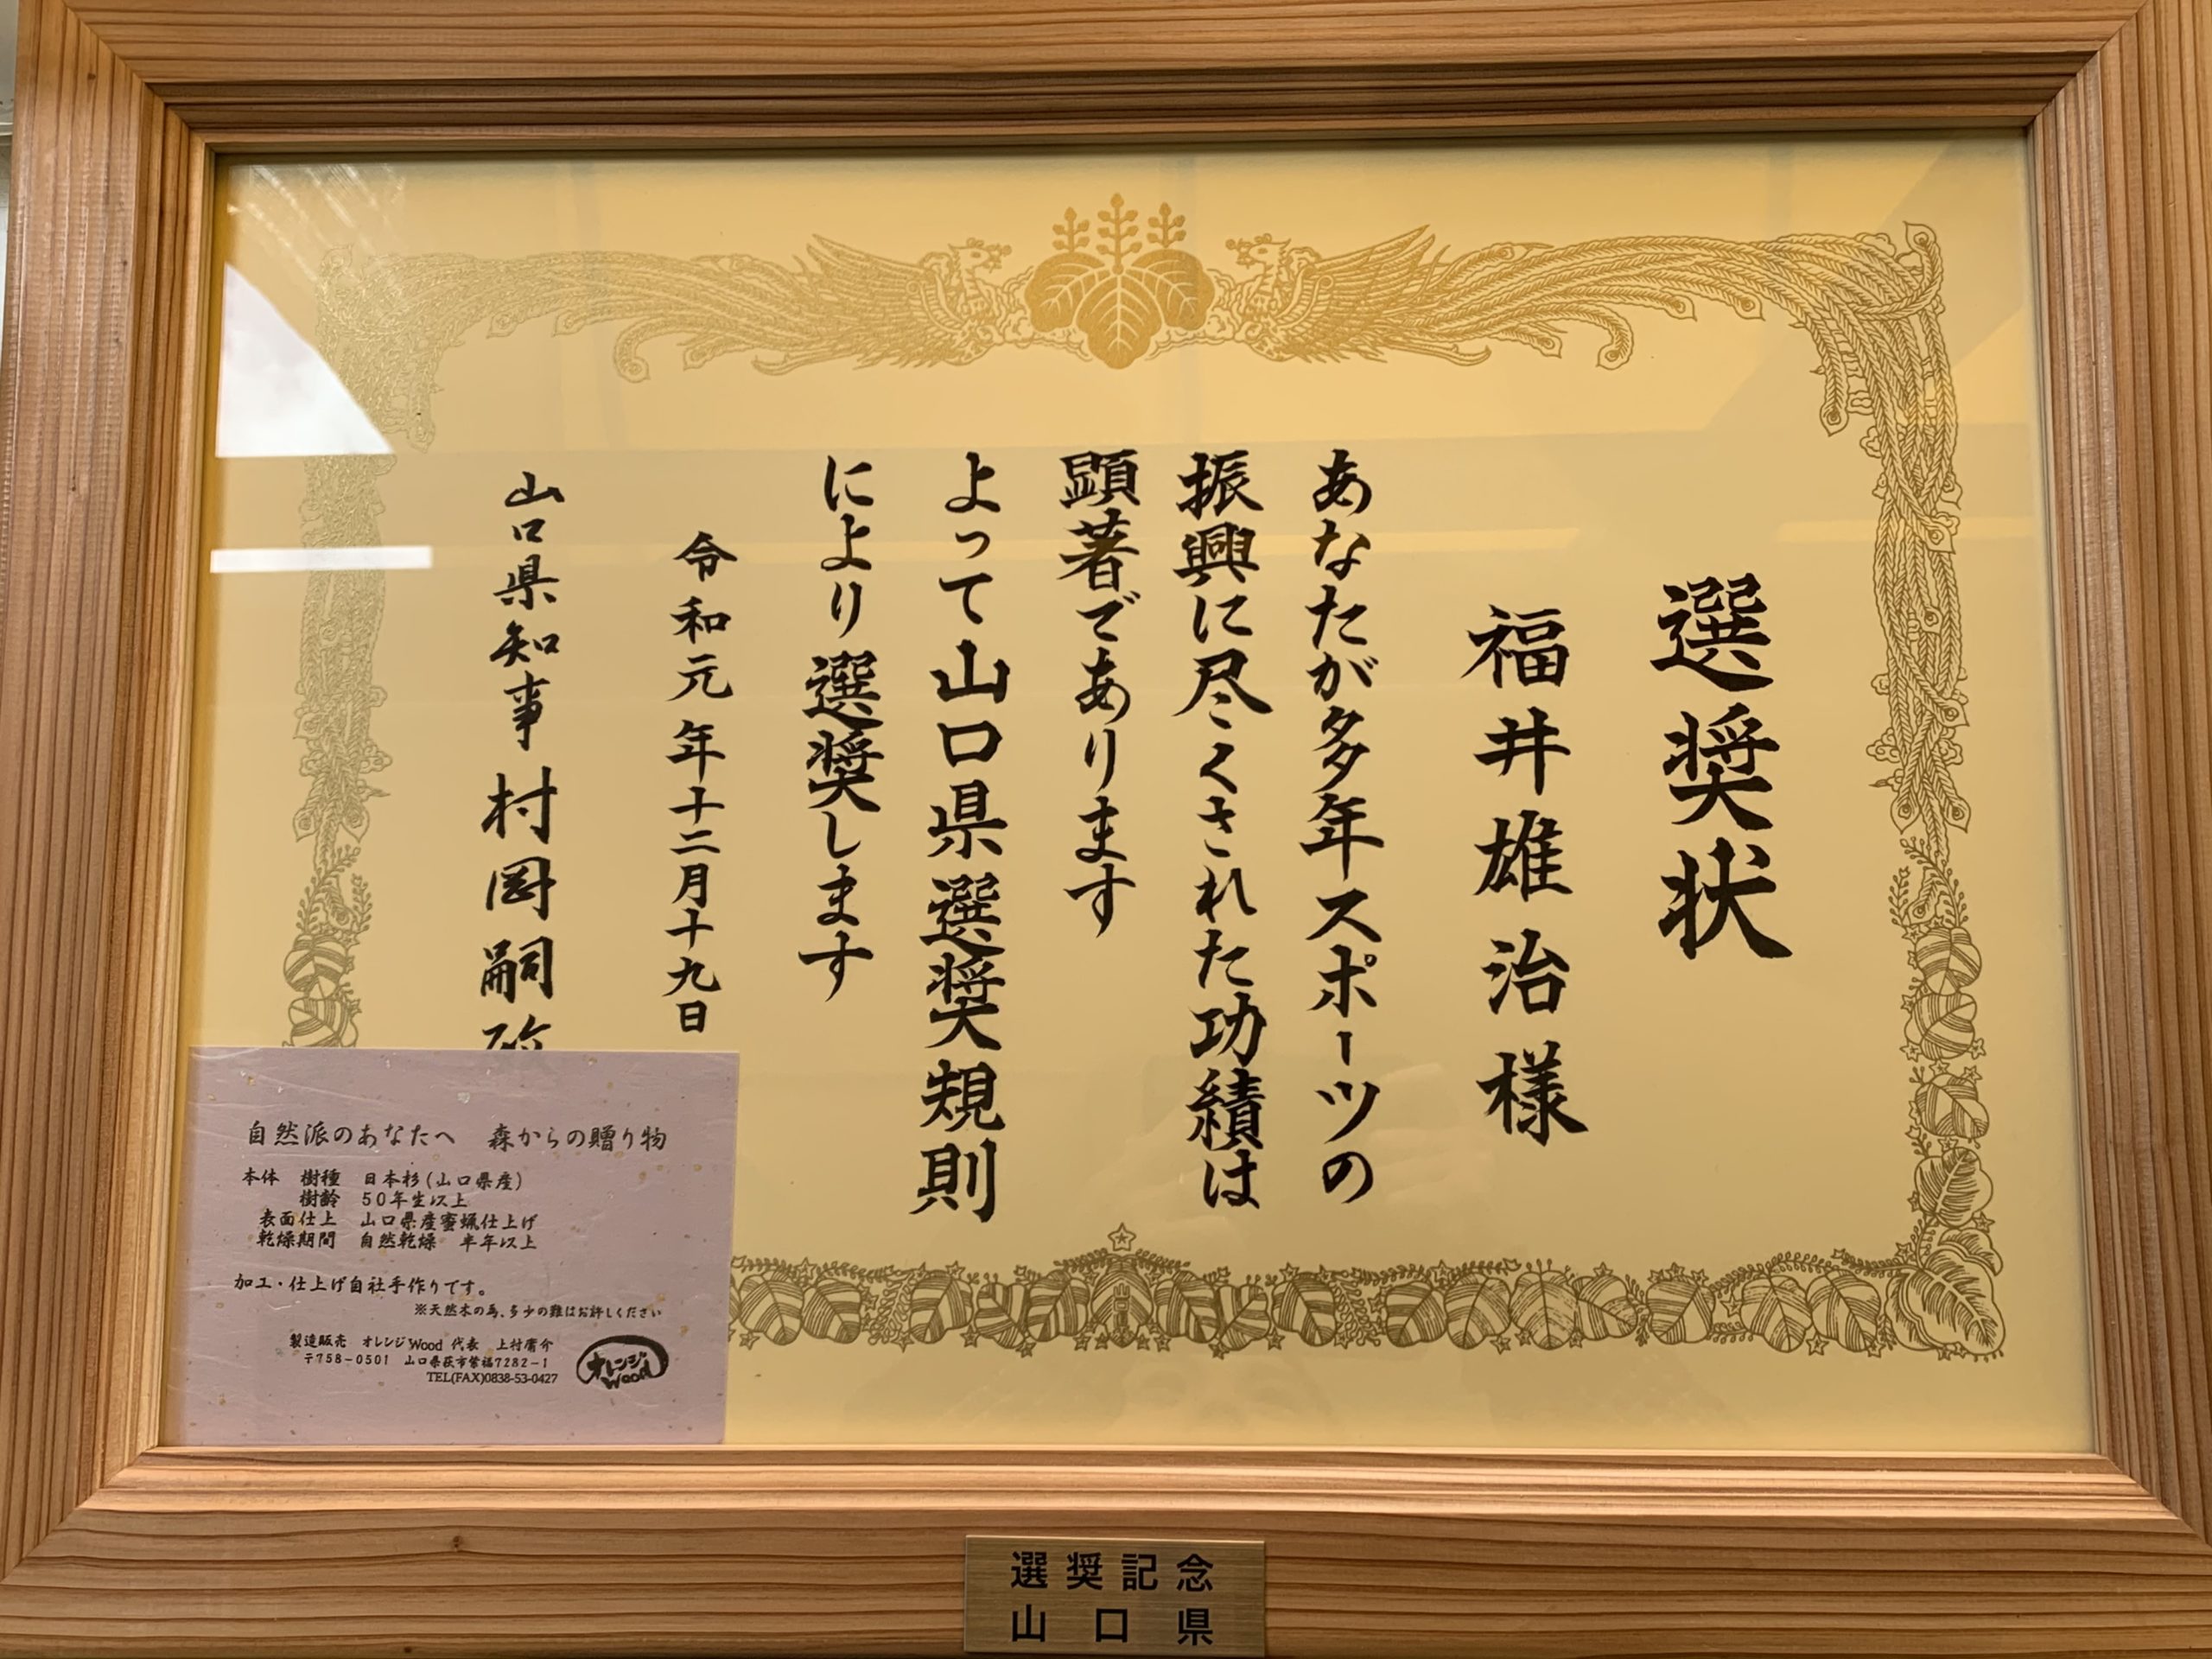 選奨状
福井雄治様
あなたが多年スポーツの
振興に尽くされた功績は
顕著であります
よって山口県選奨規則
により選奨します
令和元年十二月十九日
山口県知事 村岡嗣政
自然派のあなたへ 森からの贈り物
本体 樹種 日本杉(山口県産)
樹齢 50年生以上
表面仕上 山口県産蜜蝋仕上げ
乾燥期間 自然乾燥 半年以上
加工・仕上げ自社手作りです。
※天然木の為、多少の難はお許しください
製造販売 オレンジWood 代表 上村庸介
〒758-0501 山口県萩市紫福7282-1
TEL(FAX)0838-53-0427
オレンジ
Wood
山口県
選奨記念
山口県